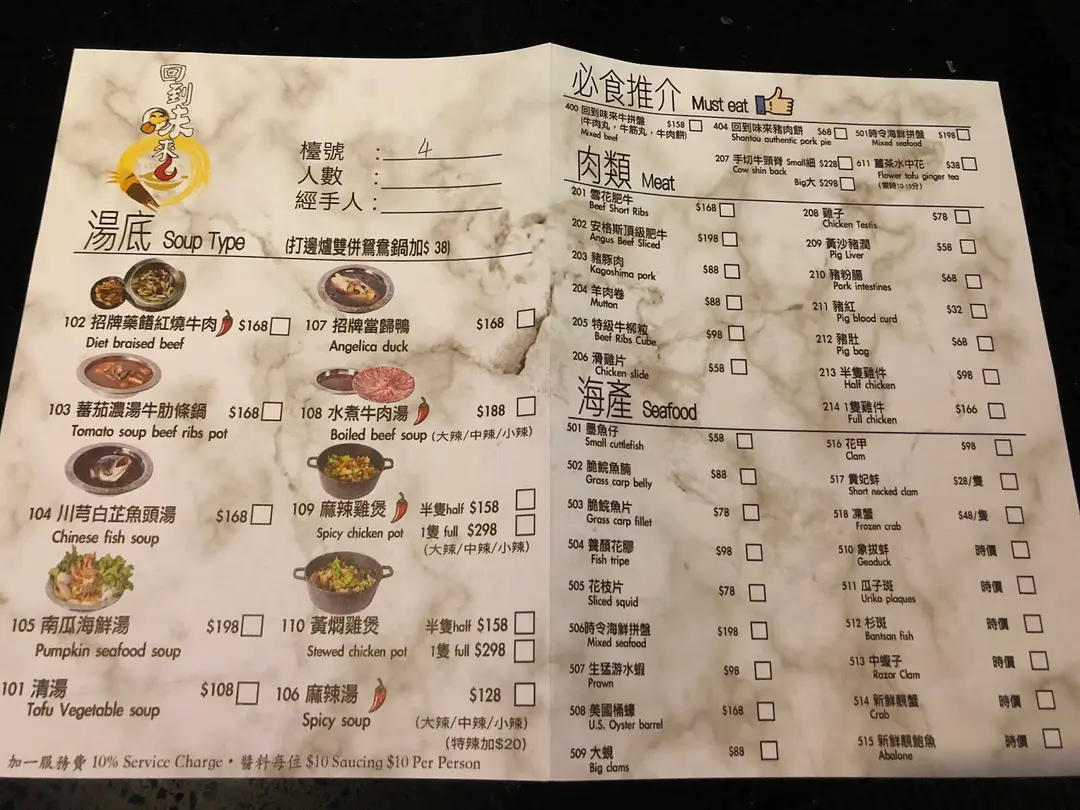 回到味來
檯號 : 4
人數 :
經手人 :
湯底 Soup Type (打邊爐雙併鴛鴦鍋加$ 38)
102 招牌藥饍紅燒牛肉 $168
Diet braised beef
107 招牌當歸鴨 $168
Angelica duck
103 蕃茄濃湯牛肋條鍋 $168
Tomato soup beef ribs pot
108 水煮牛肉湯 $188
Boiled beef soup (大辣/中辣/小辣)
104 川芎白芷魚頭湯 $168
Chinese fish soup
109 麻辣雞煲 半隻half $158
Spicy chicken pot 1隻 full $298
(大辣/中辣/小辣)
105 南瓜海鮮湯 $198
Pumpkin seafood soup
110 黃燜雞煲 半隻half $158
Stewed chicken pot 1隻 full $298
101 清湯 $108
Tofu Vegetable soup
106 麻辣湯 $128
Spicy soup (大辣/中辣/小辣)
(特辣加$20)
加一服務費 10% Service Charge · 醬料每位 $10 Saucing $10 Per Person
必食推介 Must eat
400 回到味來牛拼盤 $158
(牛肉丸，牛筋丸，牛肉餅)
Mixed beef
404 回到味來豬肉餅 $68
Shantou authentic pork pie
501時令海鮮拼盤 $198
Mixed seafood
207 手切牛頸脊 Small細 $228
Cow shin back
Big大 $298
611 薑茶水中花 $38
Flower tofu ginger tea
(需時10-15分)
肉類 Meat
201 雪花肥牛 $168
Beef Short Ribs
202 安格斯頂級肥牛 $198
Angus Beef Sliced
203 豬豚肉 $88
Kagoshima pork
204 羊肉卷 $88
Mutton
205 特級牛柳粒 $98
Beef Ribs Cube
206 滑雞片 $58
Chicken slide
208 雞子 $78
Chicken Testis
209 黃沙豬潤 $58
Pig Liver
210 豬粉腸 $68
Pork intestines
211 豬紅 $32
Pig blood curd
212 豬肚 $68
Pig bag
213 半隻雞件 $98
Half chicken
214 1隻雞件 $166
Full chicken
海產 Seafood
501 墨魚仔 $58
Small cuttlefish
502 脆鯇魚腩 $88
Grass carp belly
503 脆鯇魚片 $78
Grass carp fillet
504 養顏花膠 $98
Fish tripe
505 花枝片 $78
Sliced squid
506時令海鮮拼盤 $198
Mixed seafood
507 生猛游水蝦 $98
Prawn
508 美國桶蠔 $168
U.S. Oyster barrel
509 大蜆 $88
Big clams
516 花甲 $98
Clam
517 貴妃蚌 $28/隻
Short necked clam
518 凍蟹 $48/隻
Frozen crab
510 象拔蚌 時價
Geoduck
511 瓜子斑 時價
Uriko plaques
512 杉斑 時價
Bantsan fish
513 中蟶子 時價
Razor Clam
514 新鮮靚蟹 時價
Crab
515 新鮮靚鮑魚 時價
Abalone